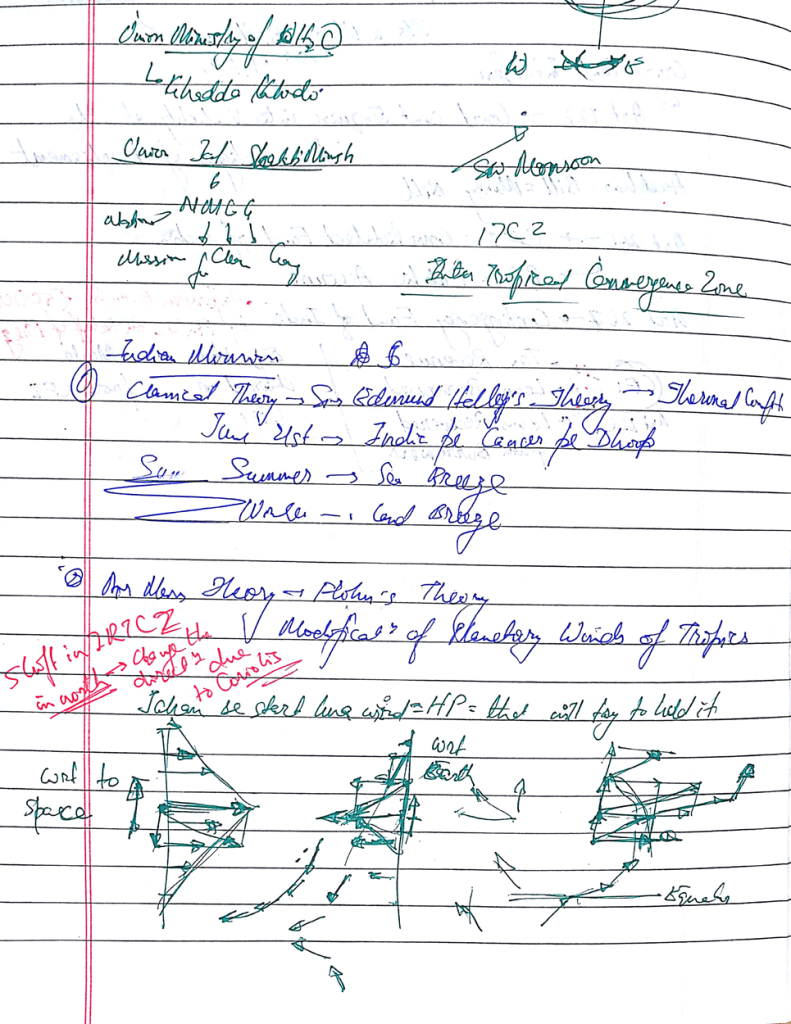 Union Ministry of H2O
Khedda Khodo
W E
Union Jal Shakti Minsh
SW Monsoon
6
NMCG
17CZ
Mission for Clean Gang
Inter Tropical Convergence Zone
Indian Monsoon 6
① Classical Theory → Sir Edmund Halley's Theory → Thermal
June 21st → India pe Cancer pe Dhoop
Sum Summer → Sea Breeze
Winter → Land Breeze
② Air Mass Theory → Flohn's Theory
Modifica^n of Planetary Winds of Tropics
Shift in ITCZ
in north → Change the
direc^n due
to Coriolis
Jahan se start hua wind = HP = that will try to hold it
wrt to
space
wrt
Earth
Equator